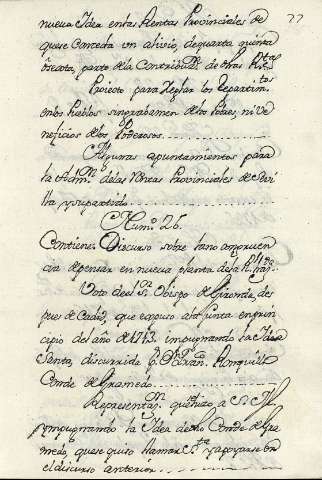 77
nueva Idea en las Rentas Provinciales de
que se conceda un alivio, de quarta quinta
ô sexta, parte de la Contribuc.ⁿ de otras R.tas
Proiecto para Reglar los Repartim.tos
en los Pueblos sin grabamen de los Pobres, ni Ve
neficios de los Poderosos
Algunas apuntamientos para
la Adm.ⁿ de las Rentas Provinciales de Sevi
lla y su partido
Num.º 25.
Contiene: Discurso sobre la no
cia de pensar en nueva planta de la R.l Haz.da
Voto del S.r Obispo de Gironda, des
pues de Cadiz, que expuso a la Junta en prin
cipio del año de 1713. impugnando la Idea
Santa, discurrida p.r D.n Fran.co Ronquillo
Conde de Gramedo
Represent.n que hizo, a S. M.
impugnando la Idea de dho Conde de Gra
medo, que se quiso llamar S.ta y apoyarse en
el discurso anterior